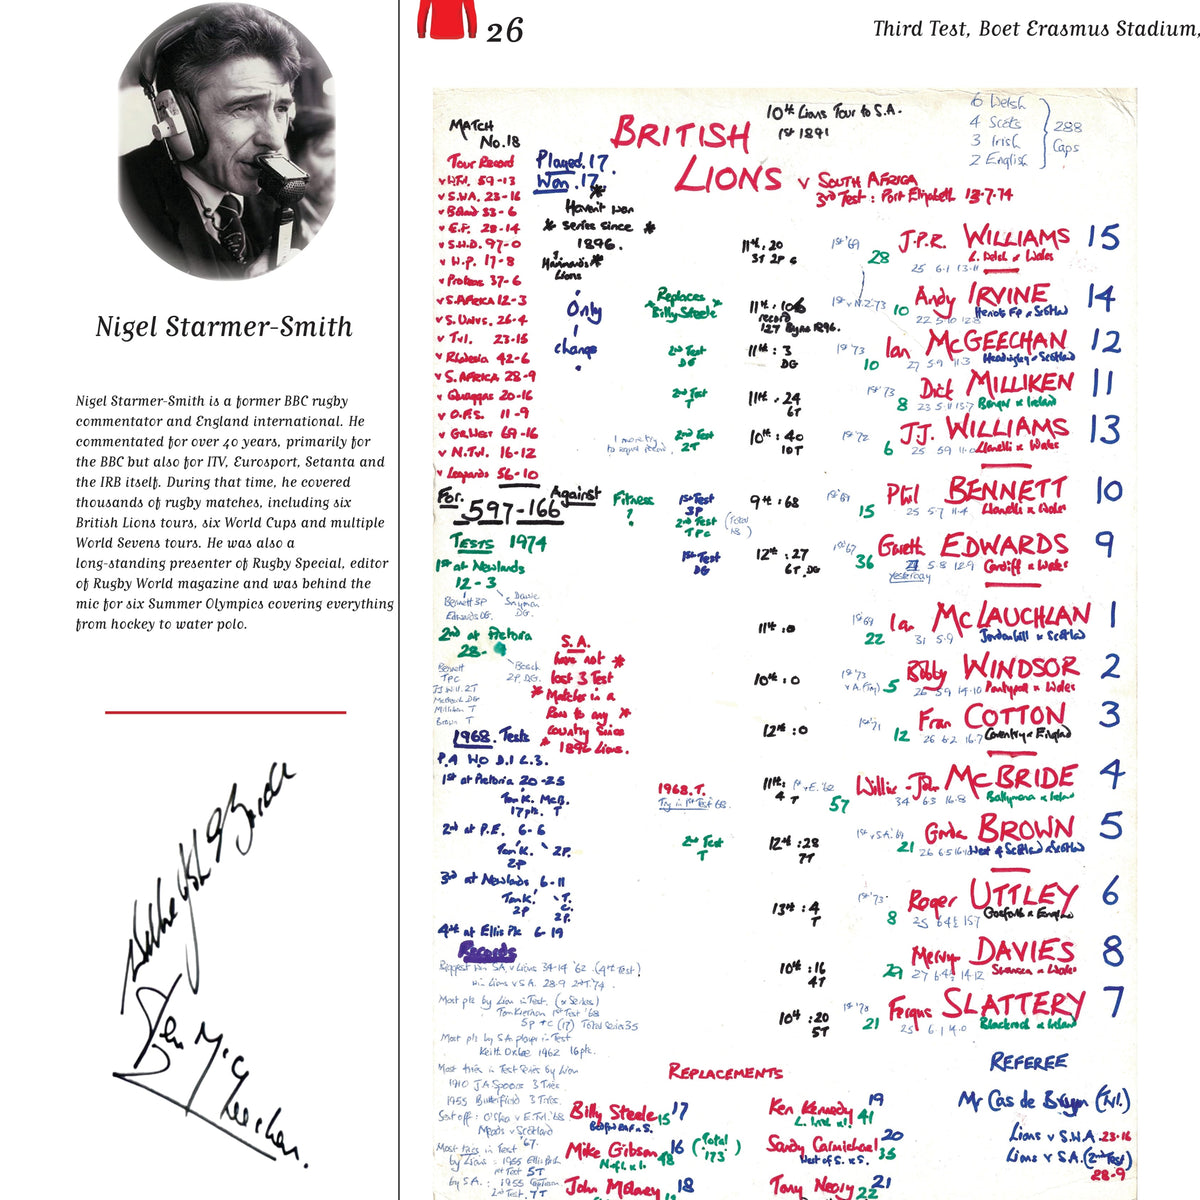 26
Third Test, Boet Erasmus Stadium,
Nigel Starmer-Smith
Nigel Starmer-Smith is a former BBC rugby
commentator and England international. He
commentated for over 40 years, primarily for
the BBC but also for ITV, Eurosport, Setanta and
the IRB itself. During that time, he covered
thousands of rugby matches, including six
British Lions tours, six World Cups and multiple
World Sevens tours. He was also a
long-standing presenter of Rugby Special, editor
of Rugby World magazine and was behind the
mic for six Summer Olympics covering everything
from hockey to water polo.
MATCH
No.18
Tour Record
v S.W.A. 23-16
v B.land 33-6
v E.P. 28-14
v S.W.D. 97-0
v W.P. 17-8
v Proteas 37-6
v S.AFRICA 12-3
v S.Univs. 26-4
v Tvl. 23-15
v Rhodesia 42-6
v S.AFRICA 28-9
v Quaggas 20-16
v O.F.S. 11-9
v Gr.West 69-16
v N.Tvl. 16-12
v Leopards 56-10
For Against
597-166
Played.17
Won.17
Haven't won
series since
1896.
Hammond's
Lions
Only
1
change
BRITISH
LIONS v SOUTH AFRICA
10th Lions Tour to S.A.
1st 1891
3rd Test: Port Elizabeth 13-7-74
6 Welsh
4 Scots
3 Irish
2 English
288
Caps
11th: 20
28 J.P.R. WILLIAMS 15
Replaces
Billy Steele
11th: 106
record
10 Andy IRVINE 14
2nd Test
DG
11th: 3
DG
1st '73
10 Ian McGEECHAN 12
Headingley & Scotland
2nd Test
T
11th: 24
6T
1st '73
8 Dick MILLIKEN 11
Bangor & Ireland
2nd Test
2T
10th: 40
10T
1st '72
6 J.J. WILLIAMS 13
Llanelli & Wales
Fitness
?
1st Test
3P
2nd Test
TPC
9th: 68
1st '69
15 Phil BENNETT 10
Llanelli & Wales
1st Test
DG
12th: 27
6T, DG
1st '67
36 Gareth EDWARDS 9
Cardiff & Wales
Yesterday
11th: 0
1st '69
22 Ian McLAUCHLAN 1
Jordanhill & Scotland
10th: 0
1st '73
5 Bobby WINDSOR 2
Pontypool & Wales
12th: 0
1st '71
12 Fran COTTON 3
Coventry & England
1968.T.
Try in 1st Test '68.
11th:
4 T
1st v E. '62
57 Willie-John McBRIDE 4
Ballymena & Ireland
2nd Test
T
12th: 28
7T
21 Gordon BROWN 5
West of Scotland & Scotland
13th: 4
T
1st '73
8 Roger UTTLEY 6
Gosforth & England
10th: 16
4T
29 Mervyn DAVIES 8
Swansea & Wales
10th: 20
5T
1st '70
21 Fergus SLATTERY 7
Blackrock & Ireland
TESTS 1974
1st at Newlands
12-3
Bennett 3P
Edwards DG.
Dawie
Snyman
DG.
2nd at Pretoria
28-
Bennett
TPC
J.J.W. 2T
McGeech DG
Milliken T
Brown T
Bosch
2P. DG.
S.A.
have not
lost 3 Test
Matches in a
Row to any
country since
1896 Lions.
1968. Tests
P.4 W0 D.1 L.3.
1st at Pretoria 20-25
Tom K. McB.
17pts. T
2nd at P.E. 6-6
Tom K. 2P.
2P
3rd at Newlands 6-11
Tom K.
2P
4th at Ellis Pk 6-19
Records
Biggest win SA v Lions 34-14 '62 (4th Test)
win Lions v SA. 28-9 2nd T. '74
Most pts by Lion in Test. (& Series)
Tom Kiernan 1st Test '68
5p + C (17) Total series 35
Most pts by S.A. player in Test
Keith Oxlee 1962 16pts.
Most tries in Test Series by Lion
1910 J A Spoors 3 Tries
1955 Butterfield 3 Tries.
Sent off: O'Shea v E.Tvl. '68
Meads v Scotland
'67.
Most tries in Test
by Lions: 1955 Ellis Park
1st Test 5T
by S.A.: 1955 Capetown
2nd Test 7T
REPLACEMENTS
Billy Steele 15 17
Mike Gibson 48 16 (Total '173')
N.I.F.C. & I.
John Moloney 18
Ken Kennedy 41 19
Sandy Carmichael 35 20
West of S. & S.
Tony Neary 22 21
REFEREE
Mr Cas de Bruyn (Tvl.)
Lions v S.W.A. 23-16
Lions v S.A. (2nd Test)
28-9